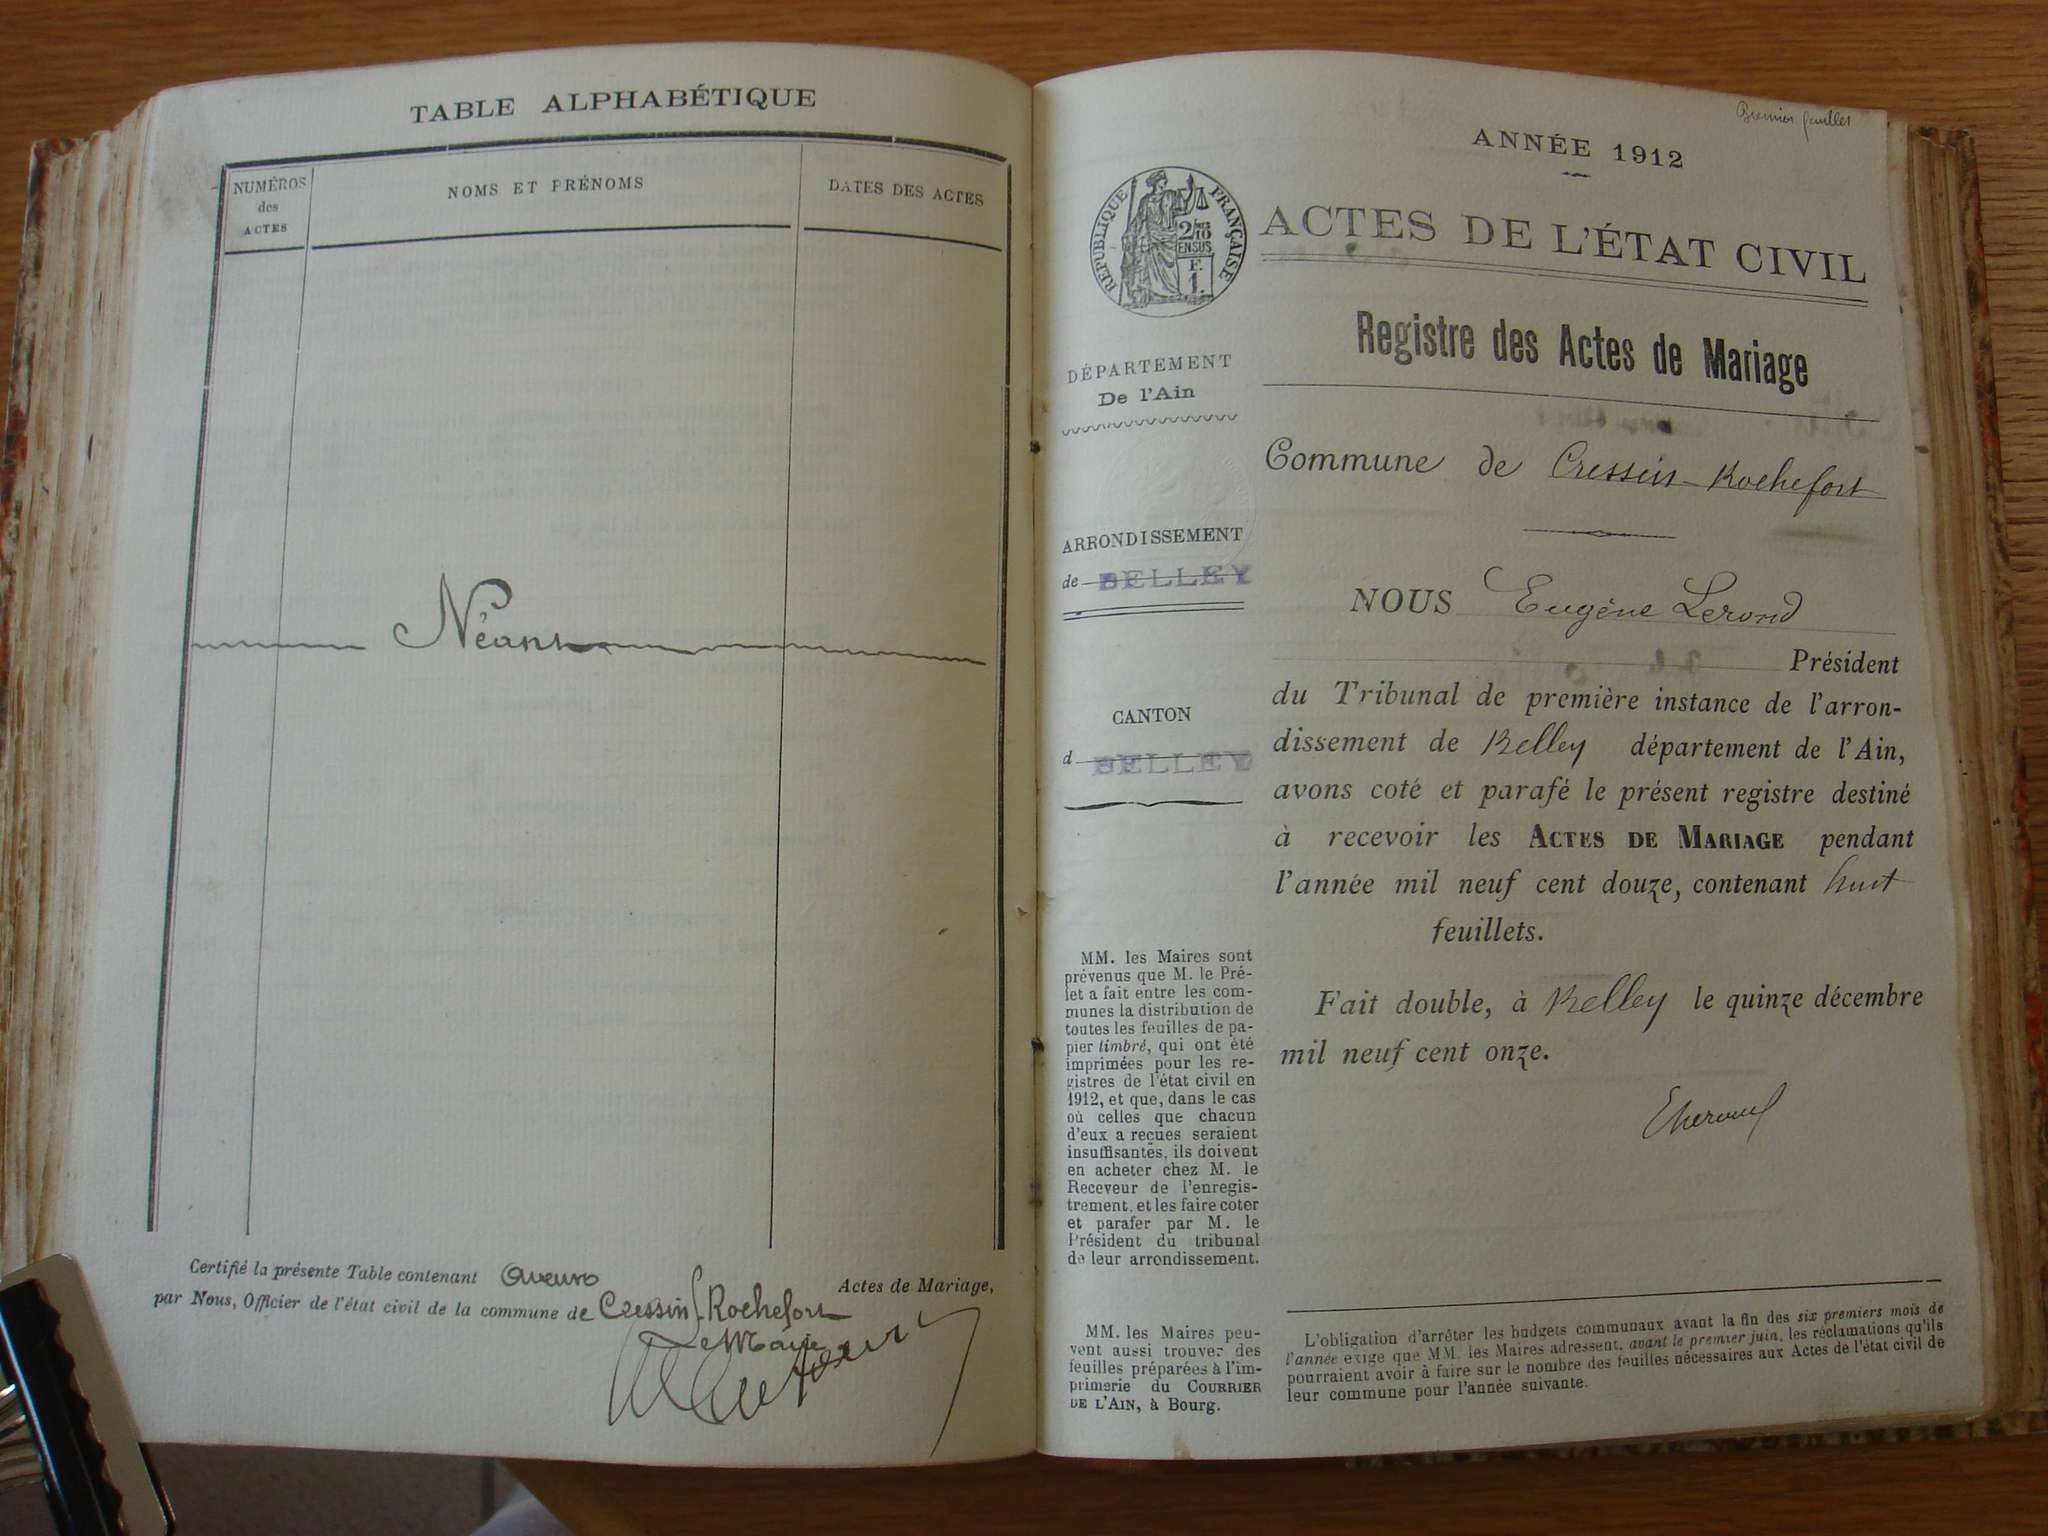 TABLE ALPHABÉTIQUE
NUMÉROS
des
ACTES
NOMS ET PRÉNOMS
DATES DES ACTES
Néant
Certifié la présente Table contenant aucuns Actes de Mariage,
par Nous, Officier de l'état civil de la commune de Cressin-Rochefort
Le Maire
Premier feuillet
ANNÉE 1912
RÉPUBLIQUE FRANÇAISE
2/10
EN SUS
F.
1.
ACTES DE L'ÉTAT CIVIL
Registre des Actes de Mariage
DÉPARTEMENT
De l'Ain
ARRONDISSEMENT
de BELLEY
CANTON
d BELLEY
MM. les Maires sont
prévenus que M. le Pré-
fet a fait entre les com-
munes la distribution de
toutes les feuilles de pa-
pier timbré, qui ont été
imprimées pour les re-
gistres de l'état civil en
1912, et que, dans le cas
où celles que chacun
d'eux a reçues seraient
insuffisantes, ils doivent
en acheter chez M. le
Receveur de l'enregis-
trement, et les faire coter
et parafer par M. le
Président du tribunal
de leur arrondissement.
MM. les Maires peu-
vent aussi trouver des
feuilles préparées à l'im-
primerie du COURRIER
DE L'AIN, à Bourg.
Commune de Cressin-Rochefort
NOUS Eugène Lerond
Président
du Tribunal de première instance de l'arron-
dissement de Belley département de l'Ain,
avons coté et parafé le présent registre destiné
à recevoir les ACTES DE MARIAGE pendant
l'année mil neuf cent douze, contenant huit
feuillets.
Fait double, à Belley le quinze décembre
mil neuf cent onze.
L'obligation d'arrêter les budgets communaux avant la fin des six premiers mois de
l'année exige que MM. les Maires adressent, avant le premier juin, les réclamations qu'ils
pourraient avoir à faire sur le nombre des feuilles nécessaires aux Actes de l'état civil de
leur commune pour l'année suivante.